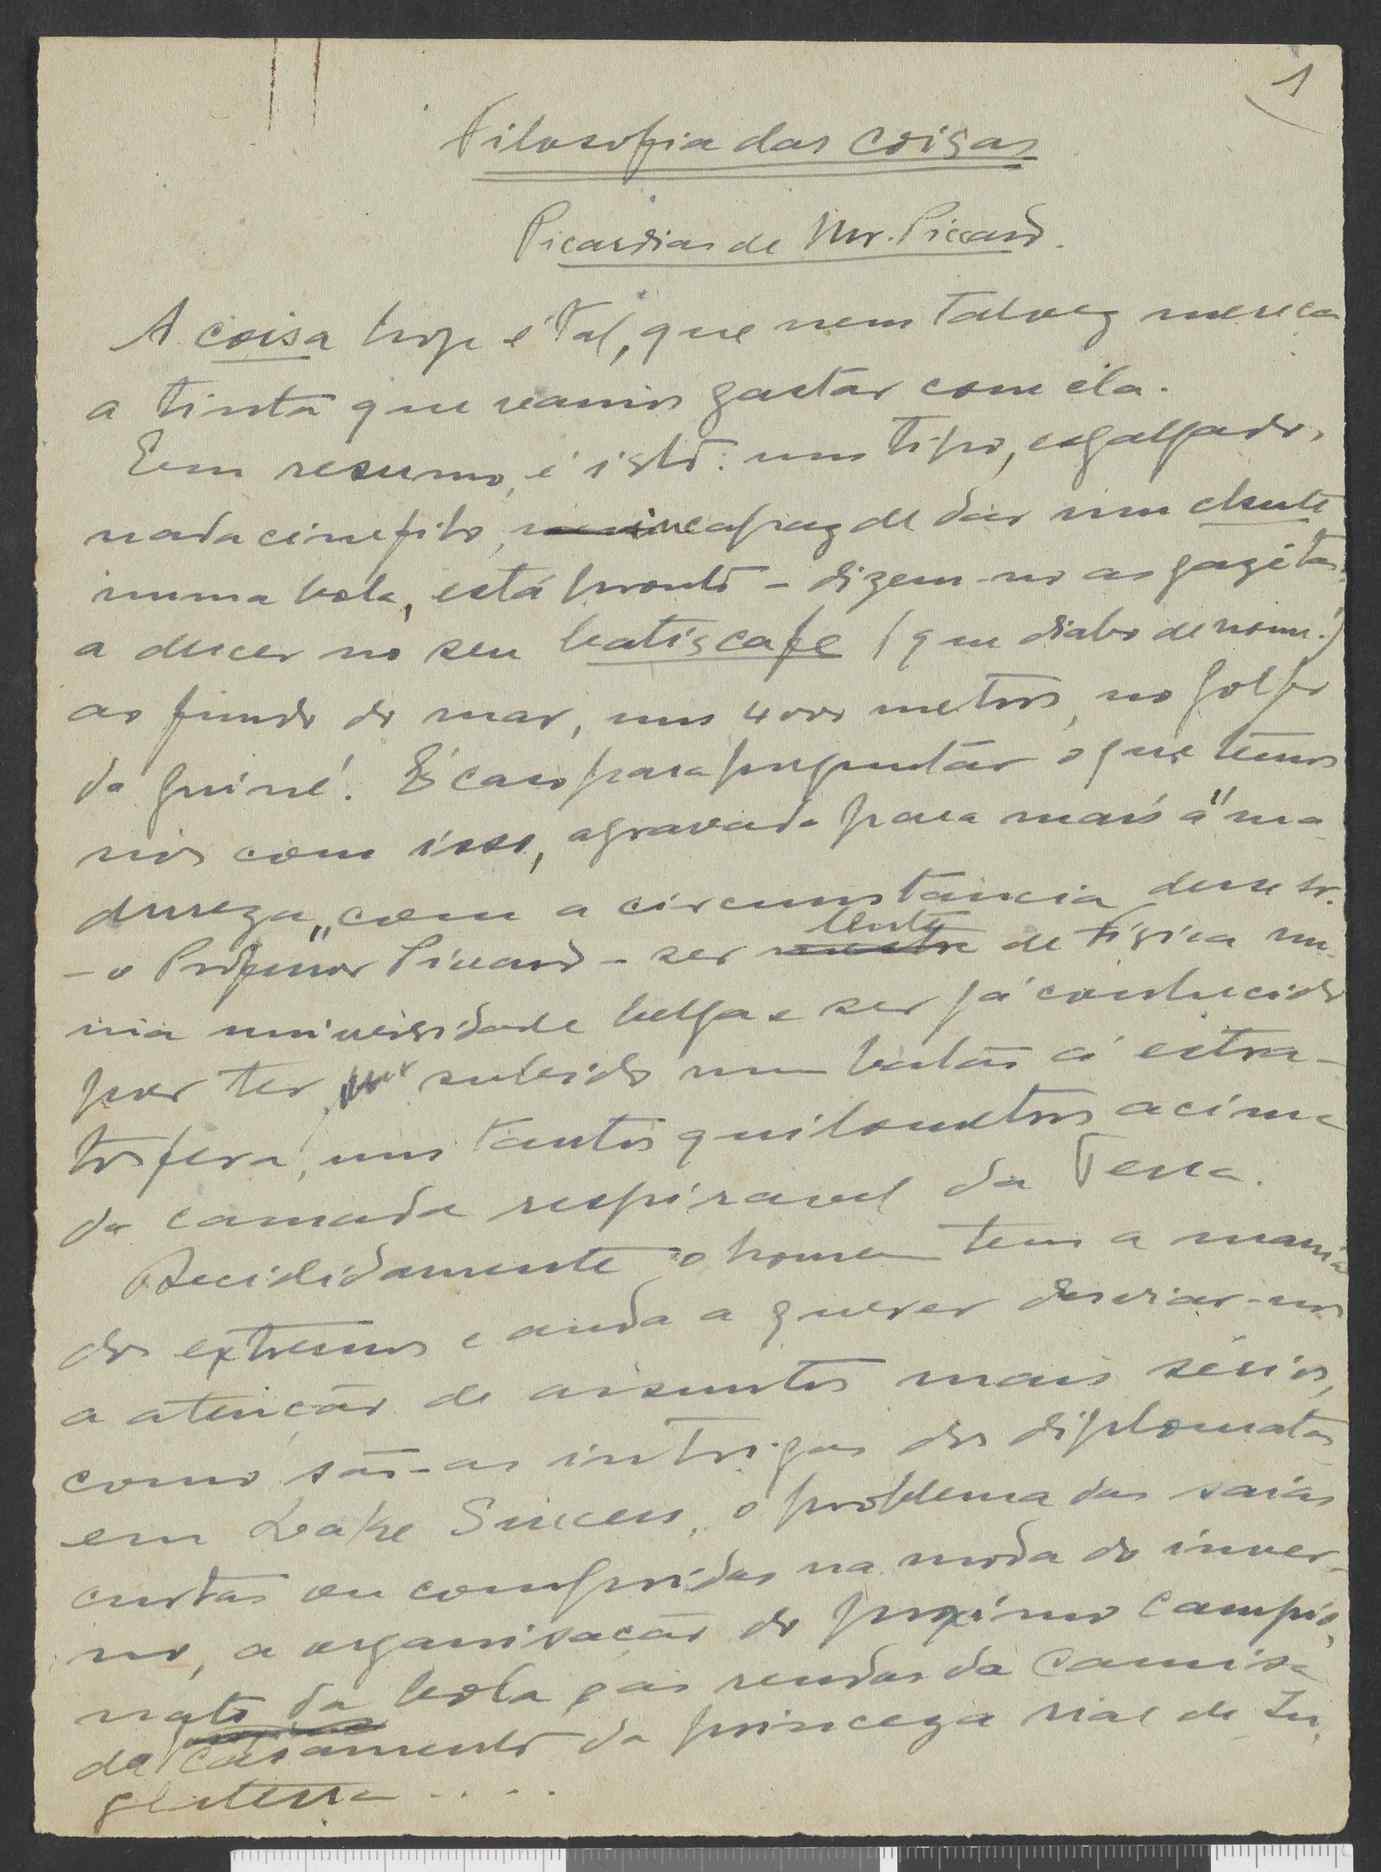 1
Filosofia das coisas
Picardias de Mr. Piccard.
A coisa hoje é tal, que nem talvez mereca
a tinta que vamos gastar com ela.
Em resumo, é isto: um tipo, esgalgado,
nada cinefilo, incapaz de dar um chute
numa bola, está pronto - dizem-no as gazetas,
a descer no seu batiscafe (que diabo de nome!)
ao fundo do mar, uns 4000 metros, no golfo
da Guiné. É caso para preguntar o que temos
nós com isso, agravada para mais a "ma-
dureza" com a circumstancia desse sr.
- o Professor Piccard - ser lente de Fisica nu-
ma universidade belga e ser já conhecido
por ter subido num balão á estra-
tosfera, uns tantos quilometros acima
da camada respiravel da Terra.
Decididamente o homem tem a mania
dos extremos e anda a querer desviar-nos
a atenção de assuntos mais sérios,
como são as intrigas dos diplomatas
em Lake Succes, o problema das saias
curtas ou compridas na moda do inver-
no, a organisacão do proximo campio-
nato da bola e as rendas da camisa
de casamento da princeza rial de In-
glaterra....